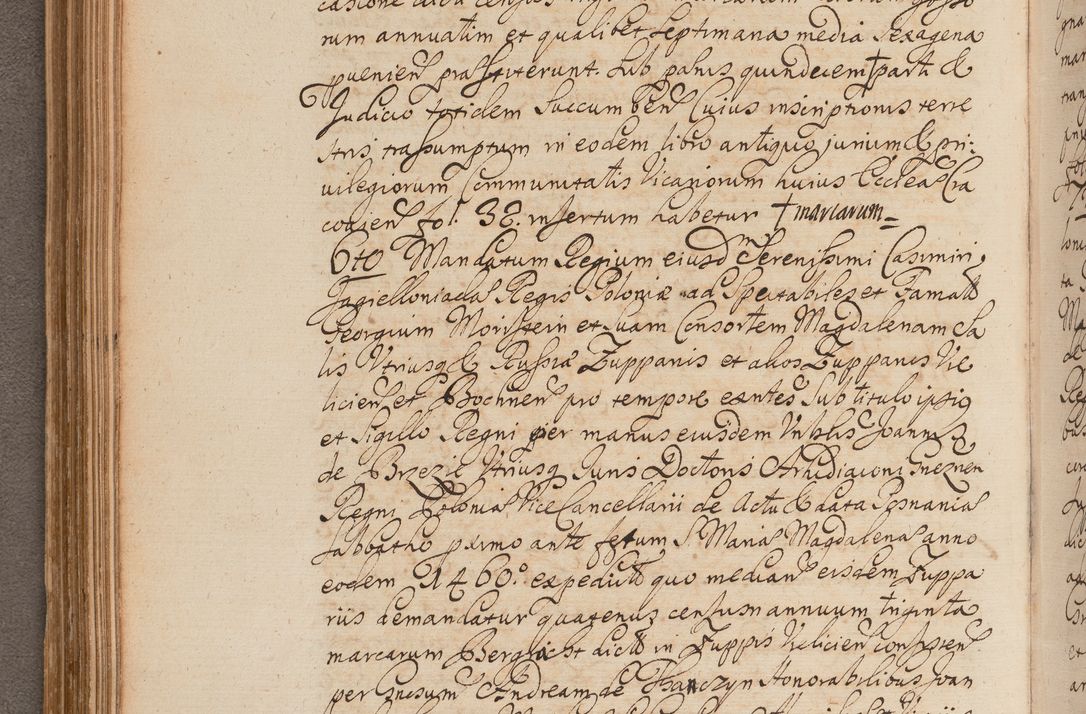 rum annuatim et qualibet septimana media sexagena
pvenien praestiterunt. Sub pænis quindecem † parti &
Judicio totidem succumben Cuius inscriptionis terre
stris trassumptum in eodem libro antiquo jurium & pri:
vilegiorum Communitatis Vicariorum huius Ecclesæ Cra
covien fol. 38. insertum habetur † marcarum
6to Mandatum Regium eiusdm Serenissimi Casimiri
Jagielloniadæ Regis Poloniæ ad Spectabiles et Famatt
Georgium Morrstein et Suam Consortem Magdalenam Sa
lis Utriusq & Russiæ Zuppanis et alios Zuppanos Vie
licien et Bochnen pro tempore exntes Sub titulo ipsig
et Sigillo Regni per manus eiusdem Vnblis Joannis
de Brzezie Utriusq Juris Doctoris Archidiaconi Gneznen
Regni Poloniæ Vice Cancellarii de Actu & data Posnaniæ
Sabbatho pximo ante festum S Mariæ Magdalenæ anno
eodem 1460.° expeditt quo median eisdem Zuppa
riis demandatur quatenus censum annuum triginta
marcarum Berglicht dictt in Zuppis Velicien consisten
per gnosum Andream de Thanczyn Honorabilibus Joan